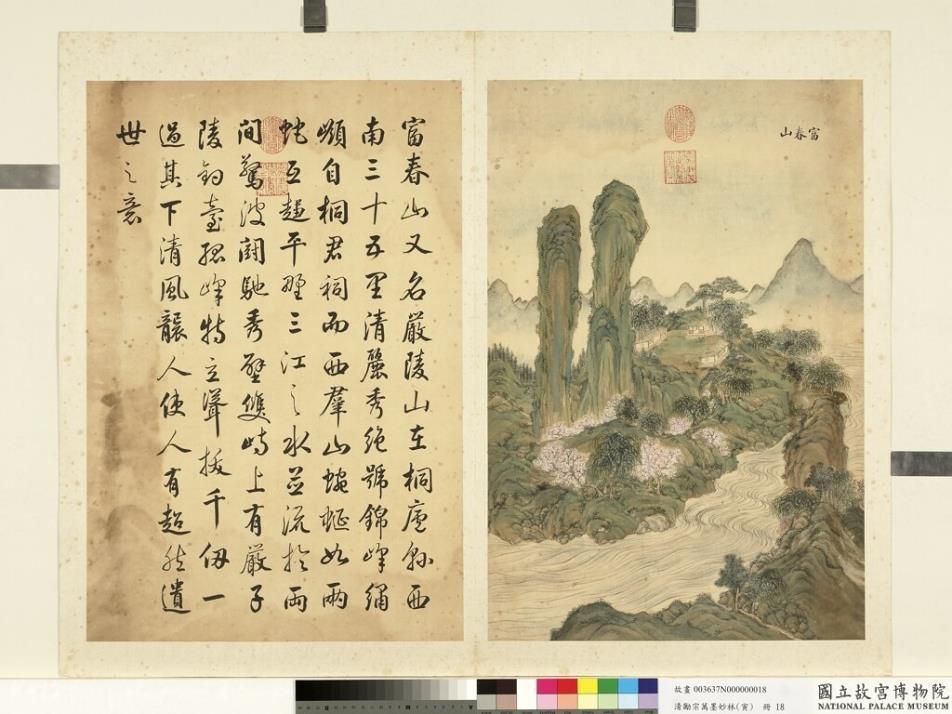 富春山
富春山又名嚴陵山在桐廬縣西
南三十五里清麗秀絕號錦峰繡
嶺自桐君祠而西羣山蜿蜒如兩
蛇互趨平野三江之水並流於兩
間驚波馳秀壁雙峙上有嚴子
陵釣臺孤峰特立聳拔千仞一
過其下清風襲人使人有超然遺
世之意
故畫 003637N000000018
清勵宗萬墨妙林(寅) 冊 18
國立故宮博物院
NATIONAL PALACE MUSEUM